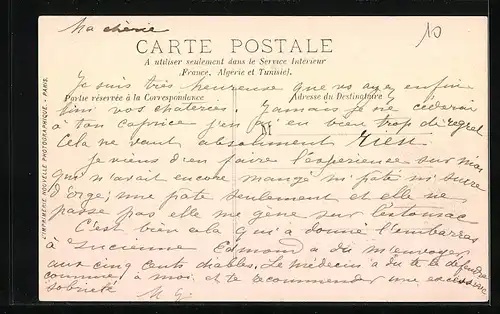 Ma chérie
10
CARTE POSTALE
A utiliser seulement dans le Service Intérieur
(France, Algérie et Tunisie).
Je suis très heureuse que vous ayez enfin
Partie réservée à la Correspondance
Adresse du Destinataire
fini vos chateries. Jamais je ne cèderais
à ton caprice j'en ai eu bien trop de regret
M
Cela ne vaut absolument rien
Je viens d'en faire l'expérience sur moi
qui n'avait encore mangé ni pâté ni sucre
d'orge; une pâte seulement et elle ne
passe pas elle me gêne sur l'estomac
C'est bien cela qui a donné l'embarras
à Lucienne Edmond a dû m'envoyer
aux cinq cents diables. Le médecin a du te le défendre
comme à moi et te recommander une excessive
sobriété
L'IMPRIMERIE NOUVELLE PHOTOGRAPHIQUE. - PARIS.